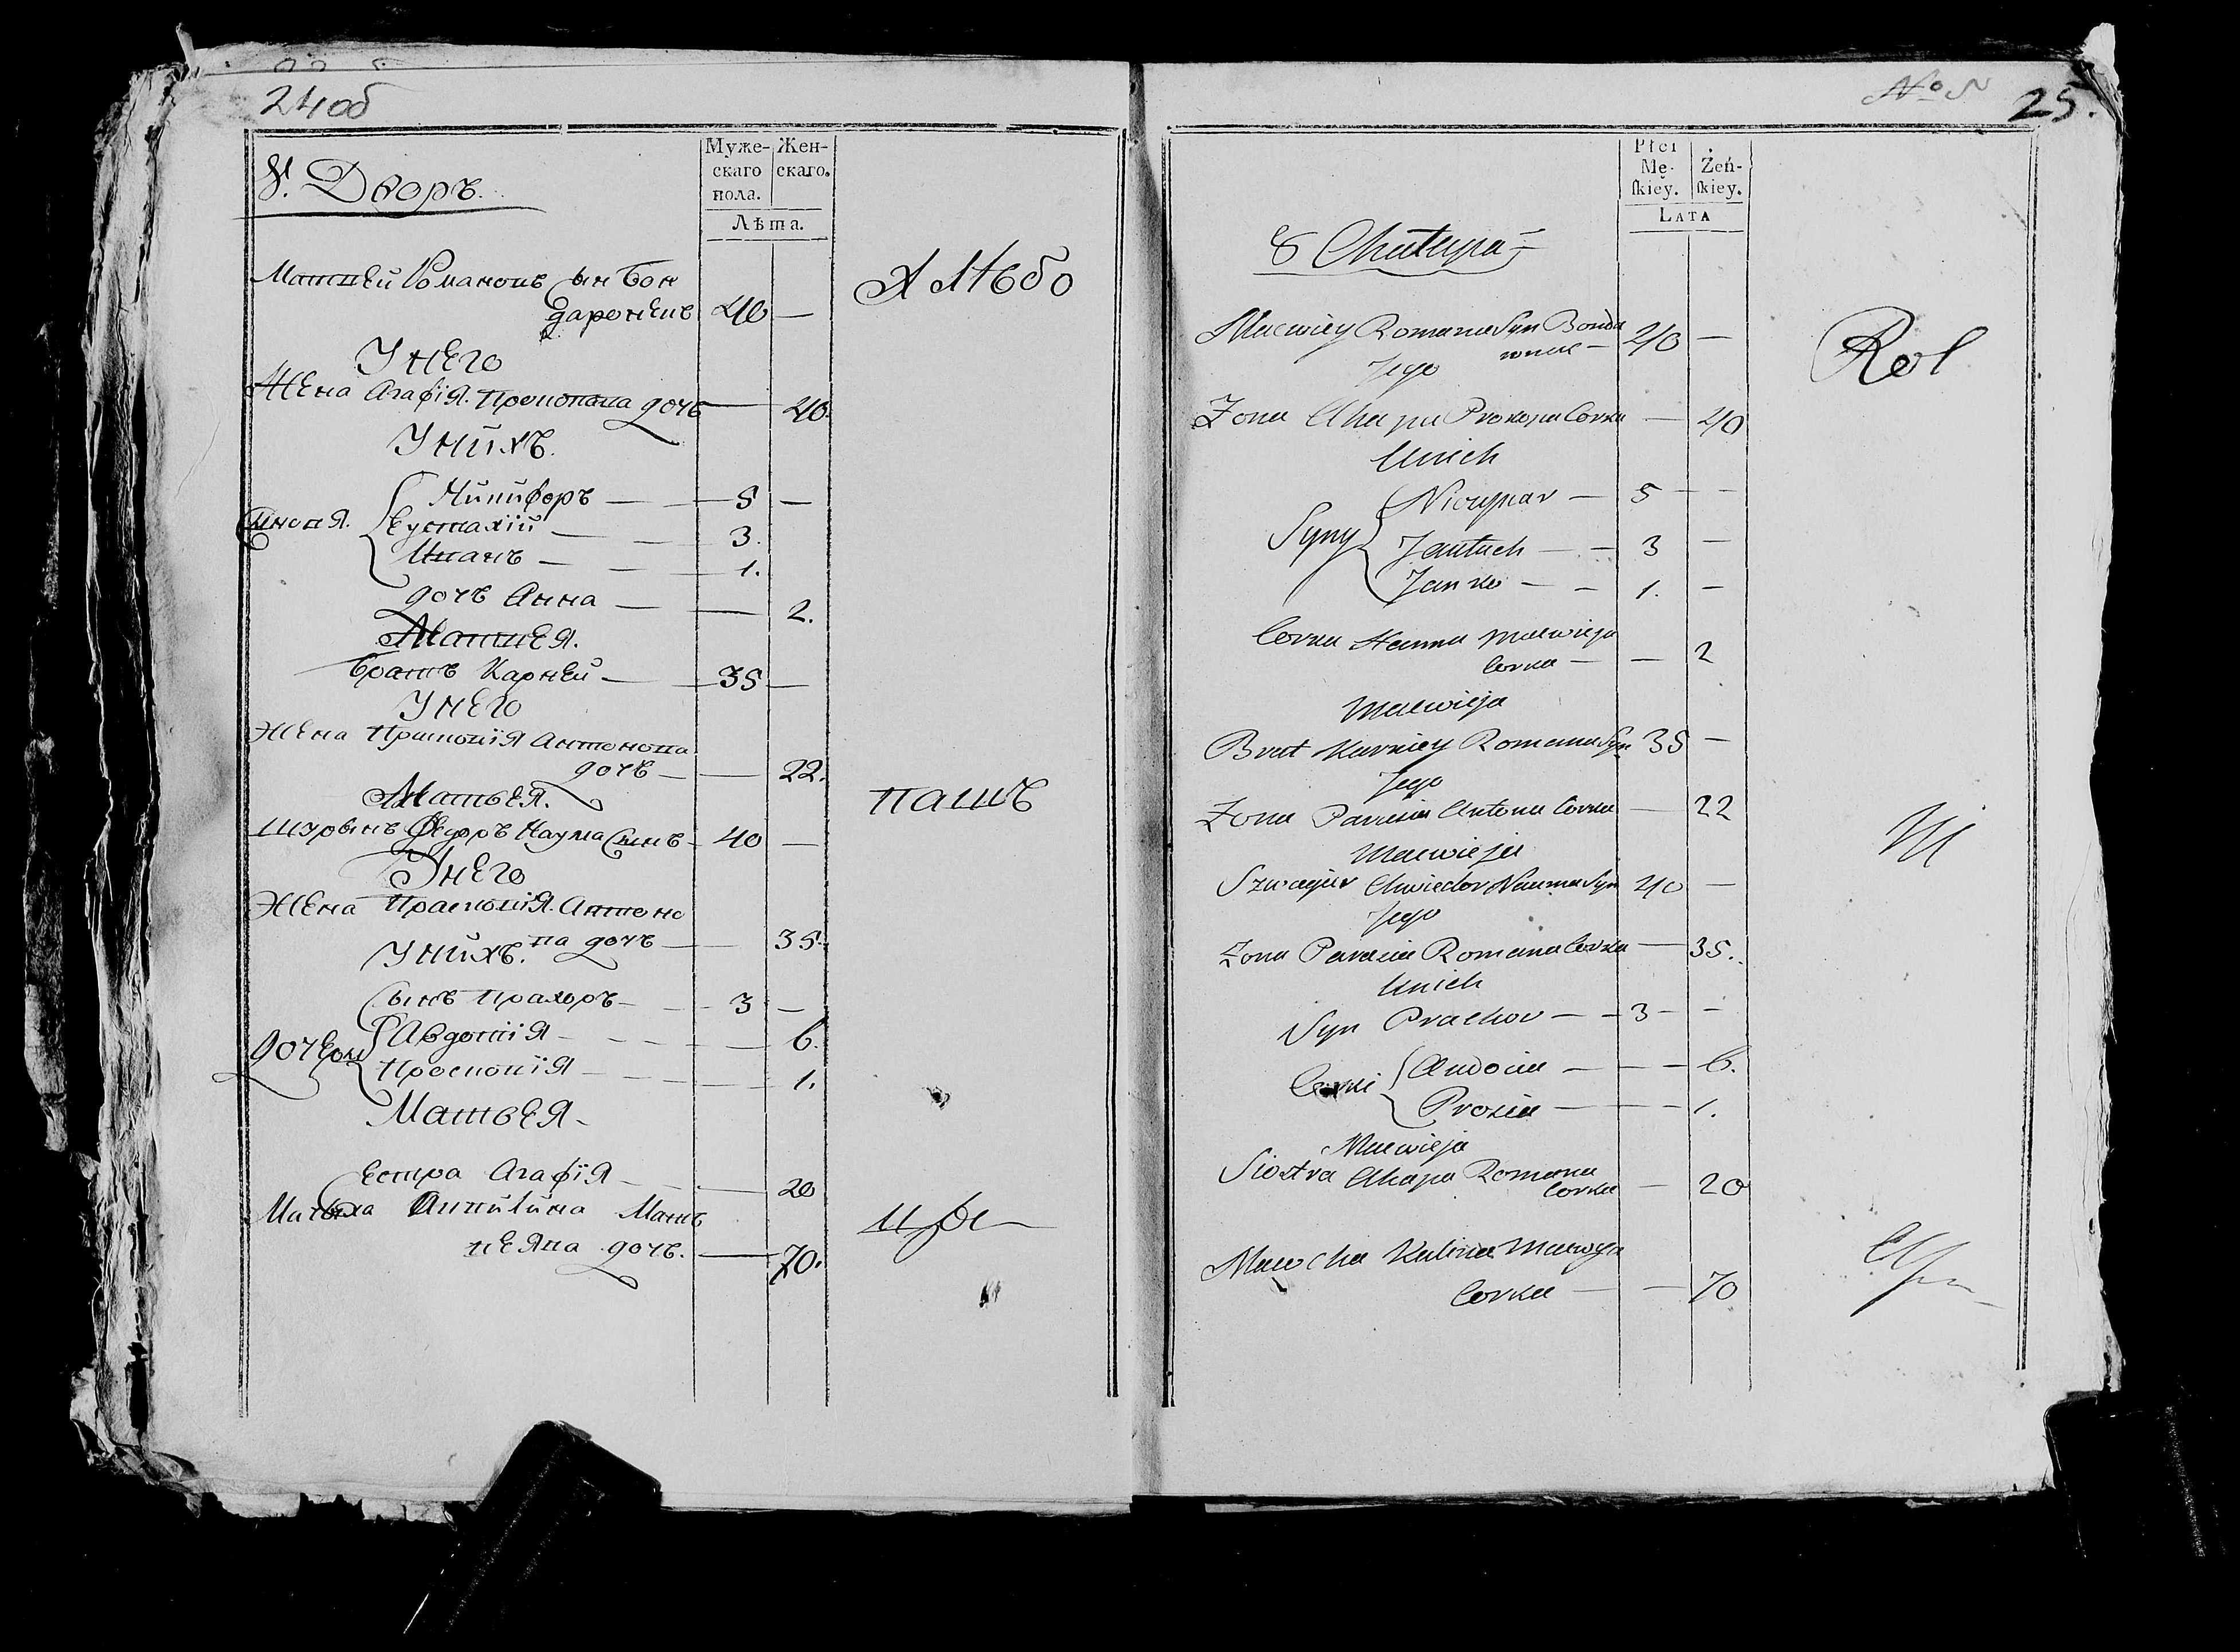 24об
8. Дворъ.
Муже-
скаго
пола.
Жен-
скаго.
Лѣта.
Матвей Романовъ сын Бон
даровецъ 40 —
У него
Жена Агафія Прокопава дочь — 40.
У нихъ.
Сыновя. Никифоръ — 5 —
Еустахій — 3.
Иванъ — 1.
дочь Анна — 2.
Матвея.
братъ Карней — 35 —
У него
Жена Прасковія Антонова
дочь — 22.
Матвея.
шурынъ Федоръ Наума сынъ — 40 —
У него
Жена Прасковія Антоно
ва дочь — 35.
У нихъ.
Сынъ Прахоръ — 3 —
дочери Авдотія — 6.
Просковія — 1.
Матвея —
Сестра Агафія — 20
Мачыха Акилина Мат
веява дочь. — 70.
Хлѣбо
паш
цы
№ 5
25.
Płci
Mę-
ſkiey.
Żeń-
ſkiey.
LATA
8 Chałupa
Maciey Romana Syn Bonda
rowiec — 40 —
Jego
Zona Ahapa Prokopa Corka — 40
U nich
Syny Niczypar — 5 — —
Jautuch — — 3 —
Janko — — 1. —
Corka Hanna Macwieja
Corka — — 2
Macwieja
Brat Karniey Romana Syn 35 —
Jego
Zona Parasia Antona Corka — 22
Macwieja
Szwagier Chwiedor Nauma Syn 40 —
Jego
Zona Parasia Romana Corka — 35.
U nich
Syn Prachor — — 3 — —
Corki Audocia — — — 6.
Prosia — — — 1.
Macwieja
Siostra Ahapa Romana
Corka — 20
Macocha Kulina Macweja
Corka — — 70
Rol
ni
cy